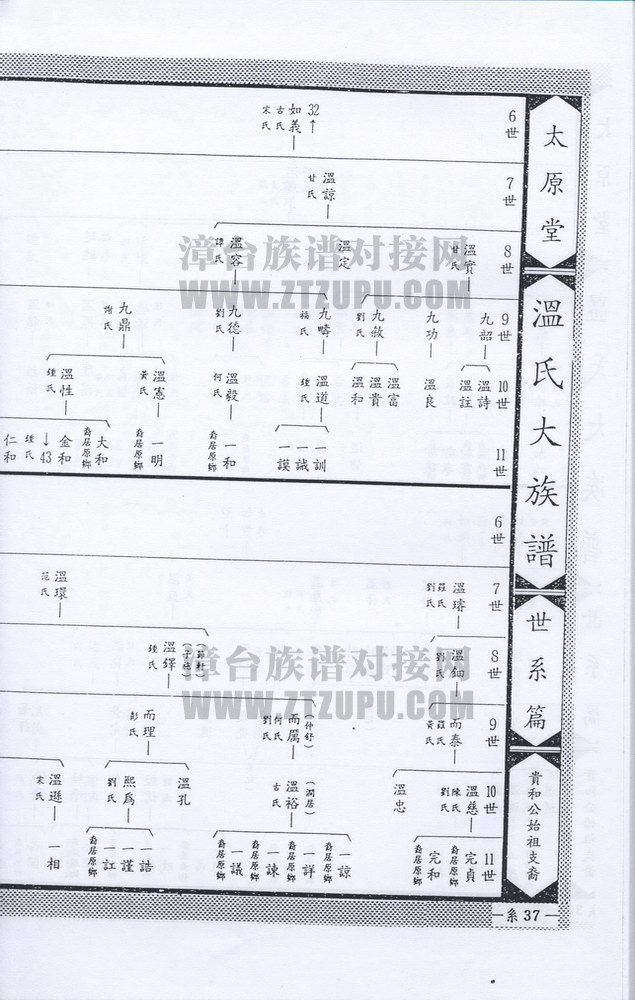 太原堂
溫氏大族譜
世系篇
貴和公始祖支裔
系 37
6世
32
↑
如義
古氏
宋氏
7世
溫諒
甘氏
8世
溫實
甘氏
溫定
溫容
鍾氏
9世
九韶
九功
九敘
劉氏
九疇
楊氏
九德
劉氏
九鼎
謝氏
10世
溫詩
溫註
溫良
溫富
溫貴
溫和
溫道
鍾氏
溫毅
何氏
溫憲
黃氏
溫性
鍾氏
11世
一訓
一誠
一謨
一和
裔居原鄉
一明
裔居原鄉
大和
裔居原鄉
金和
↓
43
鍾氏
仁和
6世
7世
溫璿
羅氏
劉氏
溫環
范氏
8世
溫鈿
劉氏
溫鐸
鍾氏
9世
而泰
羅氏
黃氏
(仲舒)
而厲
何氏
劉氏
而理
彭氏
10世
溫慈
陳氏
劉氏
溫忠
(潤居)
溫裕
古氏
溫孔
熙為
劉氏
溫遜
宋氏
11世
完貞
裔居原鄉
完和
裔居原鄉
一諒
一詳
裔居原鄉
一諫
裔居原鄉
一議
裔居原鄉
一誥
一謹
一訌
裔居原鄉
一相
漳台族谱对接网
WWW.ZTZUPU.COM
漳台族谱对接网
WWW.ZTZUPU.COM